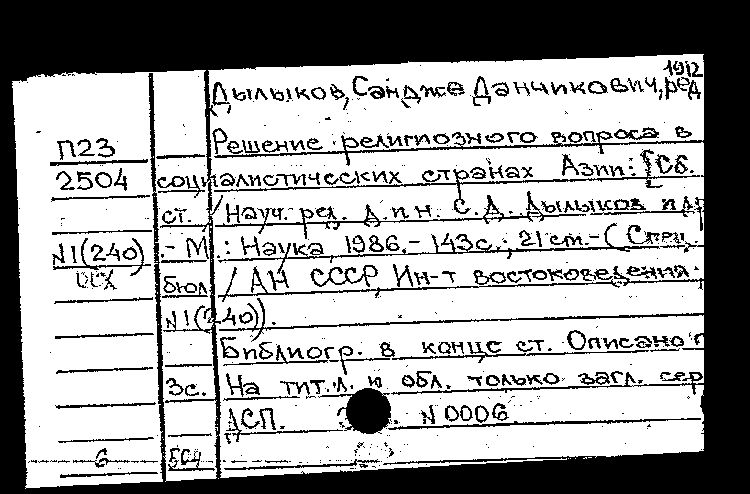 1912
Дылыков, Сандже Данчикович, ред
П23 Решение религиозного вопроса в
2504 социалистических странах Азии: [Сб.
ст. / Науч. ред. д. и н. С. Д. Дылыков и др
N1(240) .- М.: Наука, 1986.- 143с.; 21 cm.- (Спец.
бюл / АН СССР, Ин-т востоковедения.
N1(240)).
Библиогр. в конце ст. Описано
3с. На тит. л. и обл. только загл. сер
ДСП. N 0006
6 504